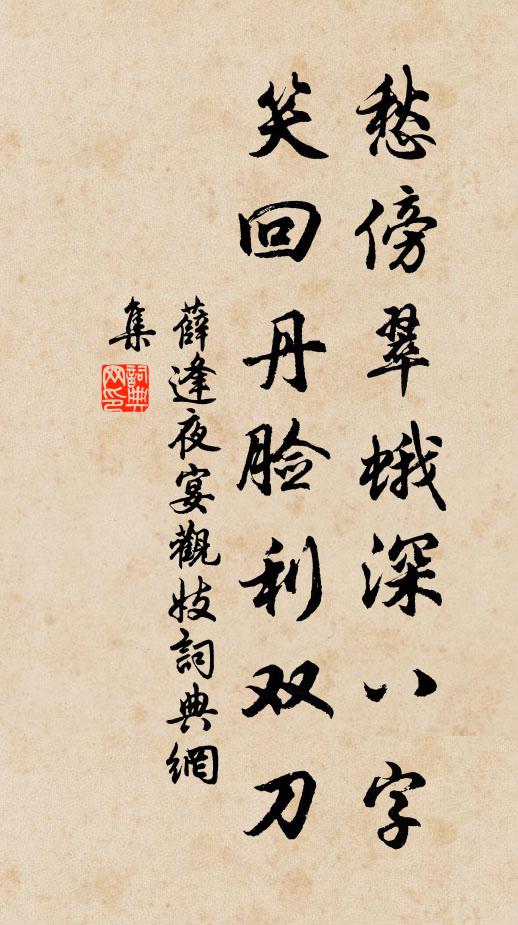 愁傍翠蛾深八字
笑回丹脸利双刀
薛逢夜宴觀妓詞典網
集
詞典
网印